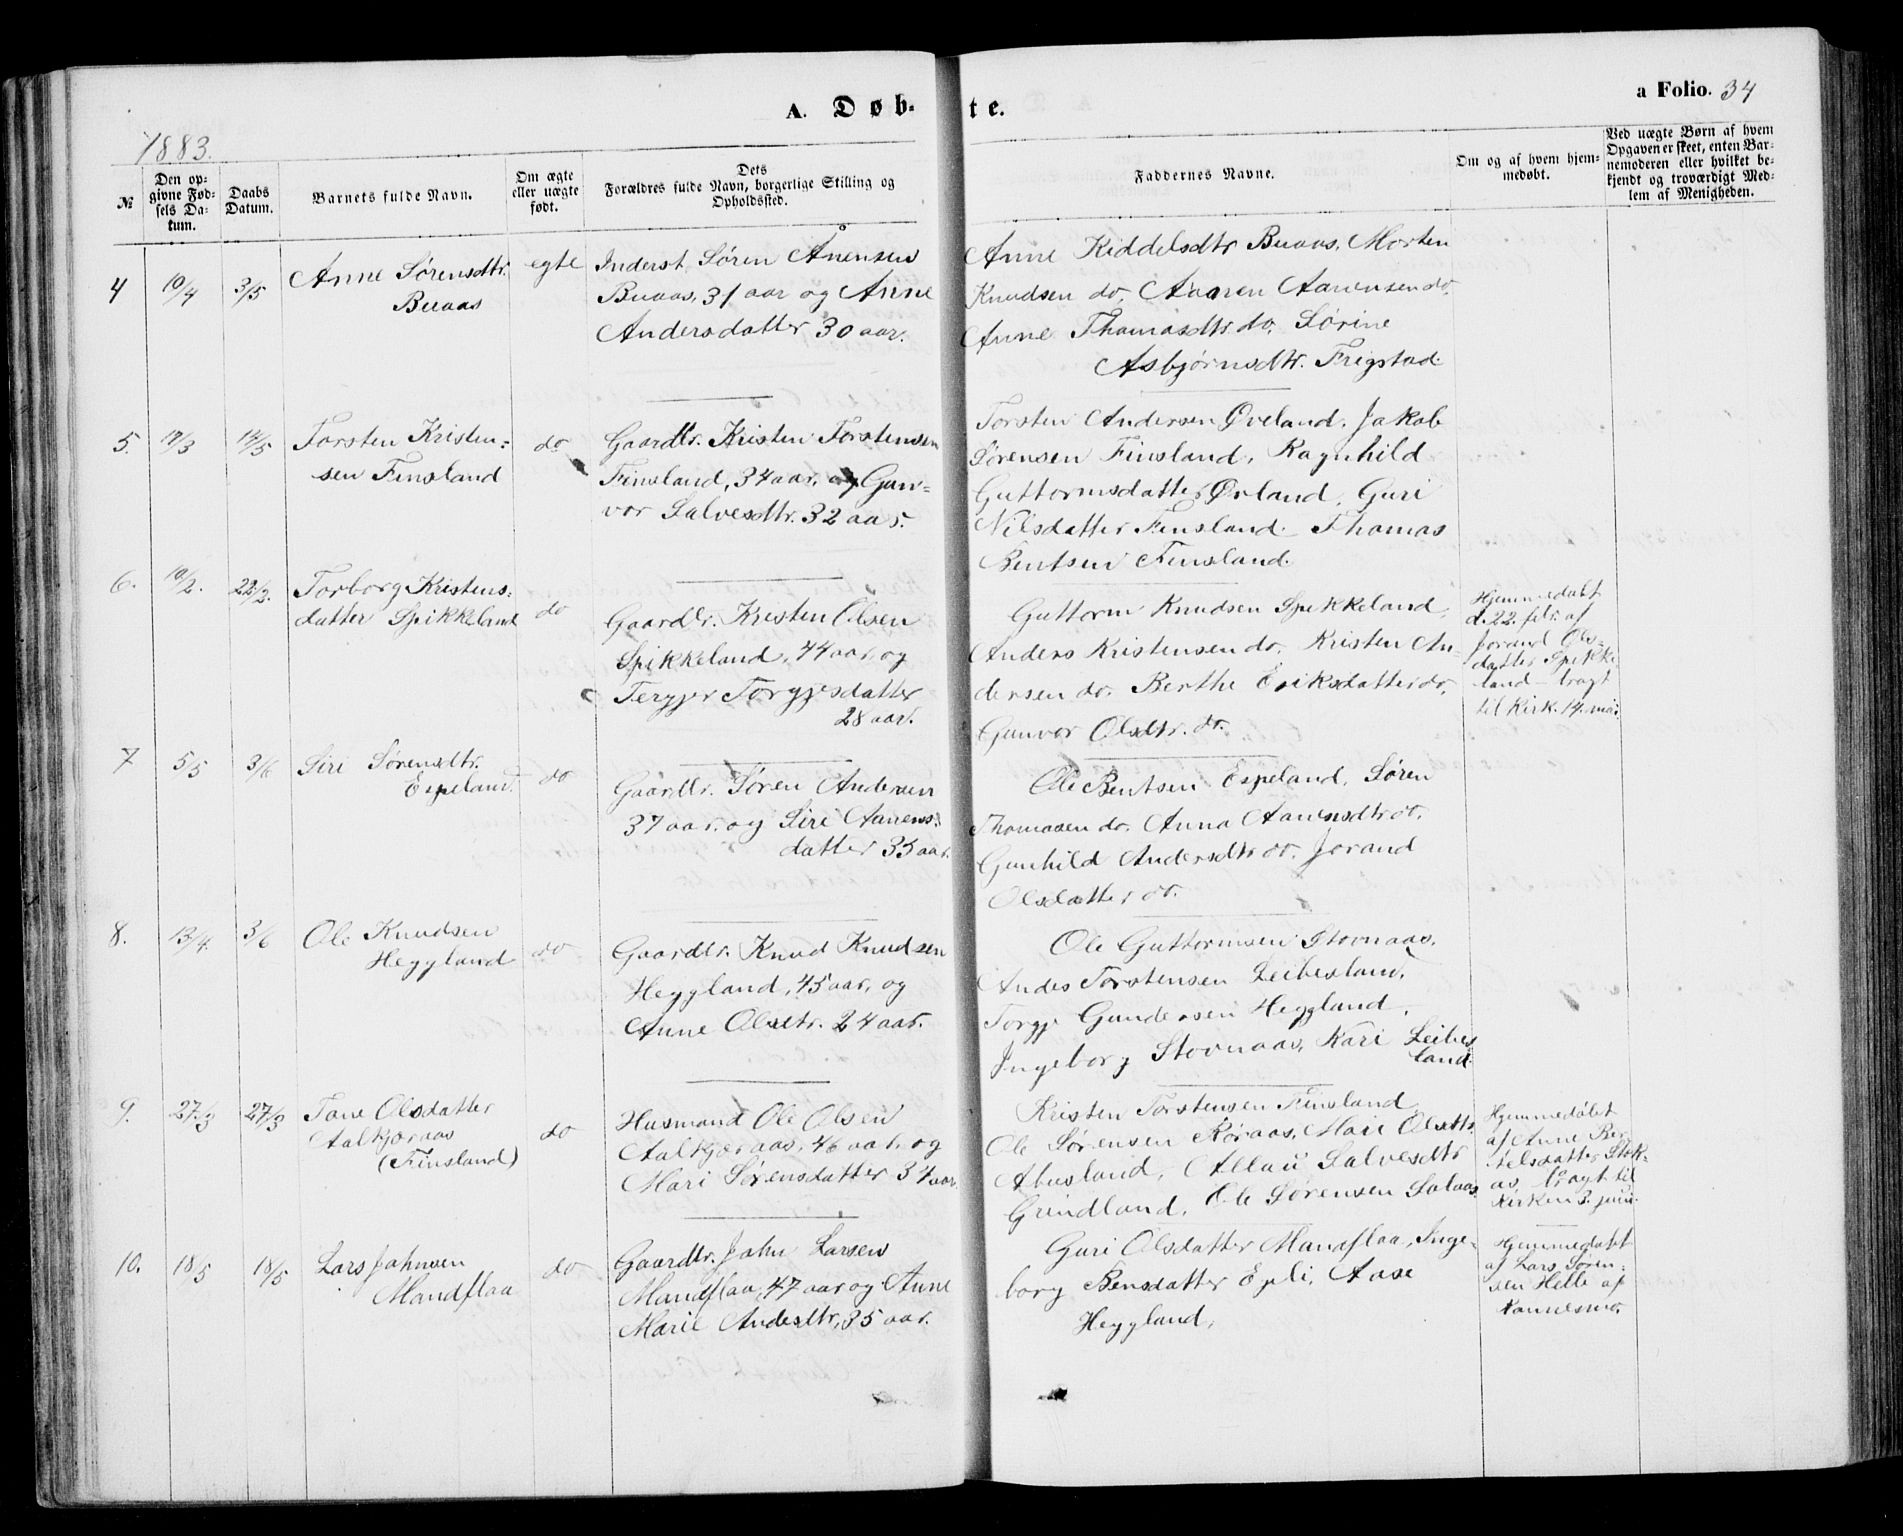 A. Døb-te.
a Folio. 34
1883.
№
Den opgivne Fødsels Datum.
Daabs Datum.
Barnets fulde Navn.
Om ægte eller uægte født.
Dets Forældres fulde Navn, borgerlige Stilling og Opholdssted.
Faddernes Navne.
Om og af hvem hjemmedøbt.
Ved uægte Børn af hvem Opgaven er skeet, enten Barnemoderen eller hvilket bekjendt og troværdigt Medlem af Menigheden.
4
10/4
3/5
Anne Sørensdtr.
Buaas
egte
Inderst Søren Ånensen
Buaas, 31 aar og Anne
Andersdatter 30 aar.
Anne Kiddelsdtr Buaas, Morten
Knudsen do, Aanen Aanensen do,
Anne Thomasdtr. do, Sørine
Asbjørnsdtr. Frigstad.
5.
17/3
14/5
Torsten Kristen=
sen Finsland
do
Gaardbr. Kristen Torstensen
Finsland, 34 aar, og Gun=
vor Salvesdtr. 32 aar.
Torsten Andersen Øveland, Jakob
Sørensen Finsland, Ragnhild
Guttormsdatter Øvland, Guri
Nilsdatter Finsland. Thomas
Bentsen Finsland.
6.
10/2.
22/2.
Torborg Kristens=
datter Spikkeland
do
Gaardbr. Kristen Olsen
Spikkeland, 44 aar, og
Tergjer Torgjesdatter
28 aar.
Guttorm Knudsen Spikkeland,
Anders Kristensen do. Kristen An=
dersen do. Berthe Eriksdatter do,
Gunvor Olsdtr. do.
Hjemmedøbt
d. 22. febr. af
Jorand Ols=
datter Spikke
land – bragt
til Kirk. 14. mai.
7
5/5
3/6
Siri Sørensdtr.
Espeland.
do
Gaardbr. Søren Andersen
37 aar. og Siri Aanens=
datter 35 aar.
Ole Bentsen Espeland, Søren
Thomasen do. Anna Aanensdtr do.
Gunhild Andersdtr do. Jorand
Olsdatter do.
8.
13/4.
3/6
Ole Knudsen
Heggland
do
Gaardbr. Knud Knudsen
Heggland, 45 aar, og
Anne Olsdtr. 24 aar.
Ole Guttormsen Stovnaas,
Andes Torstensen Leibesland,
Torgje Gundersen Heggland,
Ingeborg Stovnaas, Kari Leibes
land.
9.
27/3
27/3
Tone Olsdatter
Aalkjæraas
(Finsland)
do
Husmand Ole Olsen
Aalkjæraas, 46 aar, og
Mari Sørensdatter 34 aar.
Kristen Torstensen Finsland
Ole Sørensen Røraas, Mari Olsdtr.
Abusland, Allau Salvesdtr
Grindland, Ole Sørensen Salaas
Hjemmedøbt
af Anne Ber
telsdatter Stok-
as, bragt til
Kirken 3. juni.
10.
18/5
18/5
Lars Jahnsen
Mandflaa
do
Gaardbr. Jahn Larsen
Mandflaa, 47 aar og Anne
Marie Andesdtr, 35 aar.
Guri Olsdatter Mandflaa, Inge=
borg Bensdatter Epli, Aase
Heggland,
Hjemmedøbt
af Lars Søren=
sen Helle af